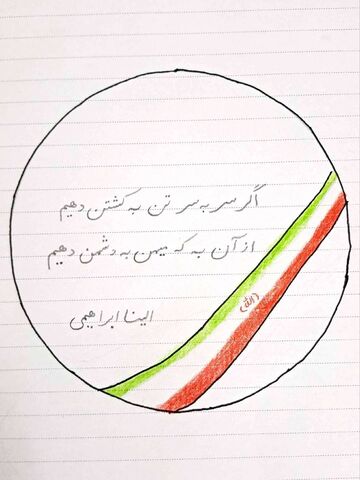 اگر سر به سر تن به کشتن دهیم
از آن به که میهن به دشمن دهیم
(الله)
الینا ابراهیمی